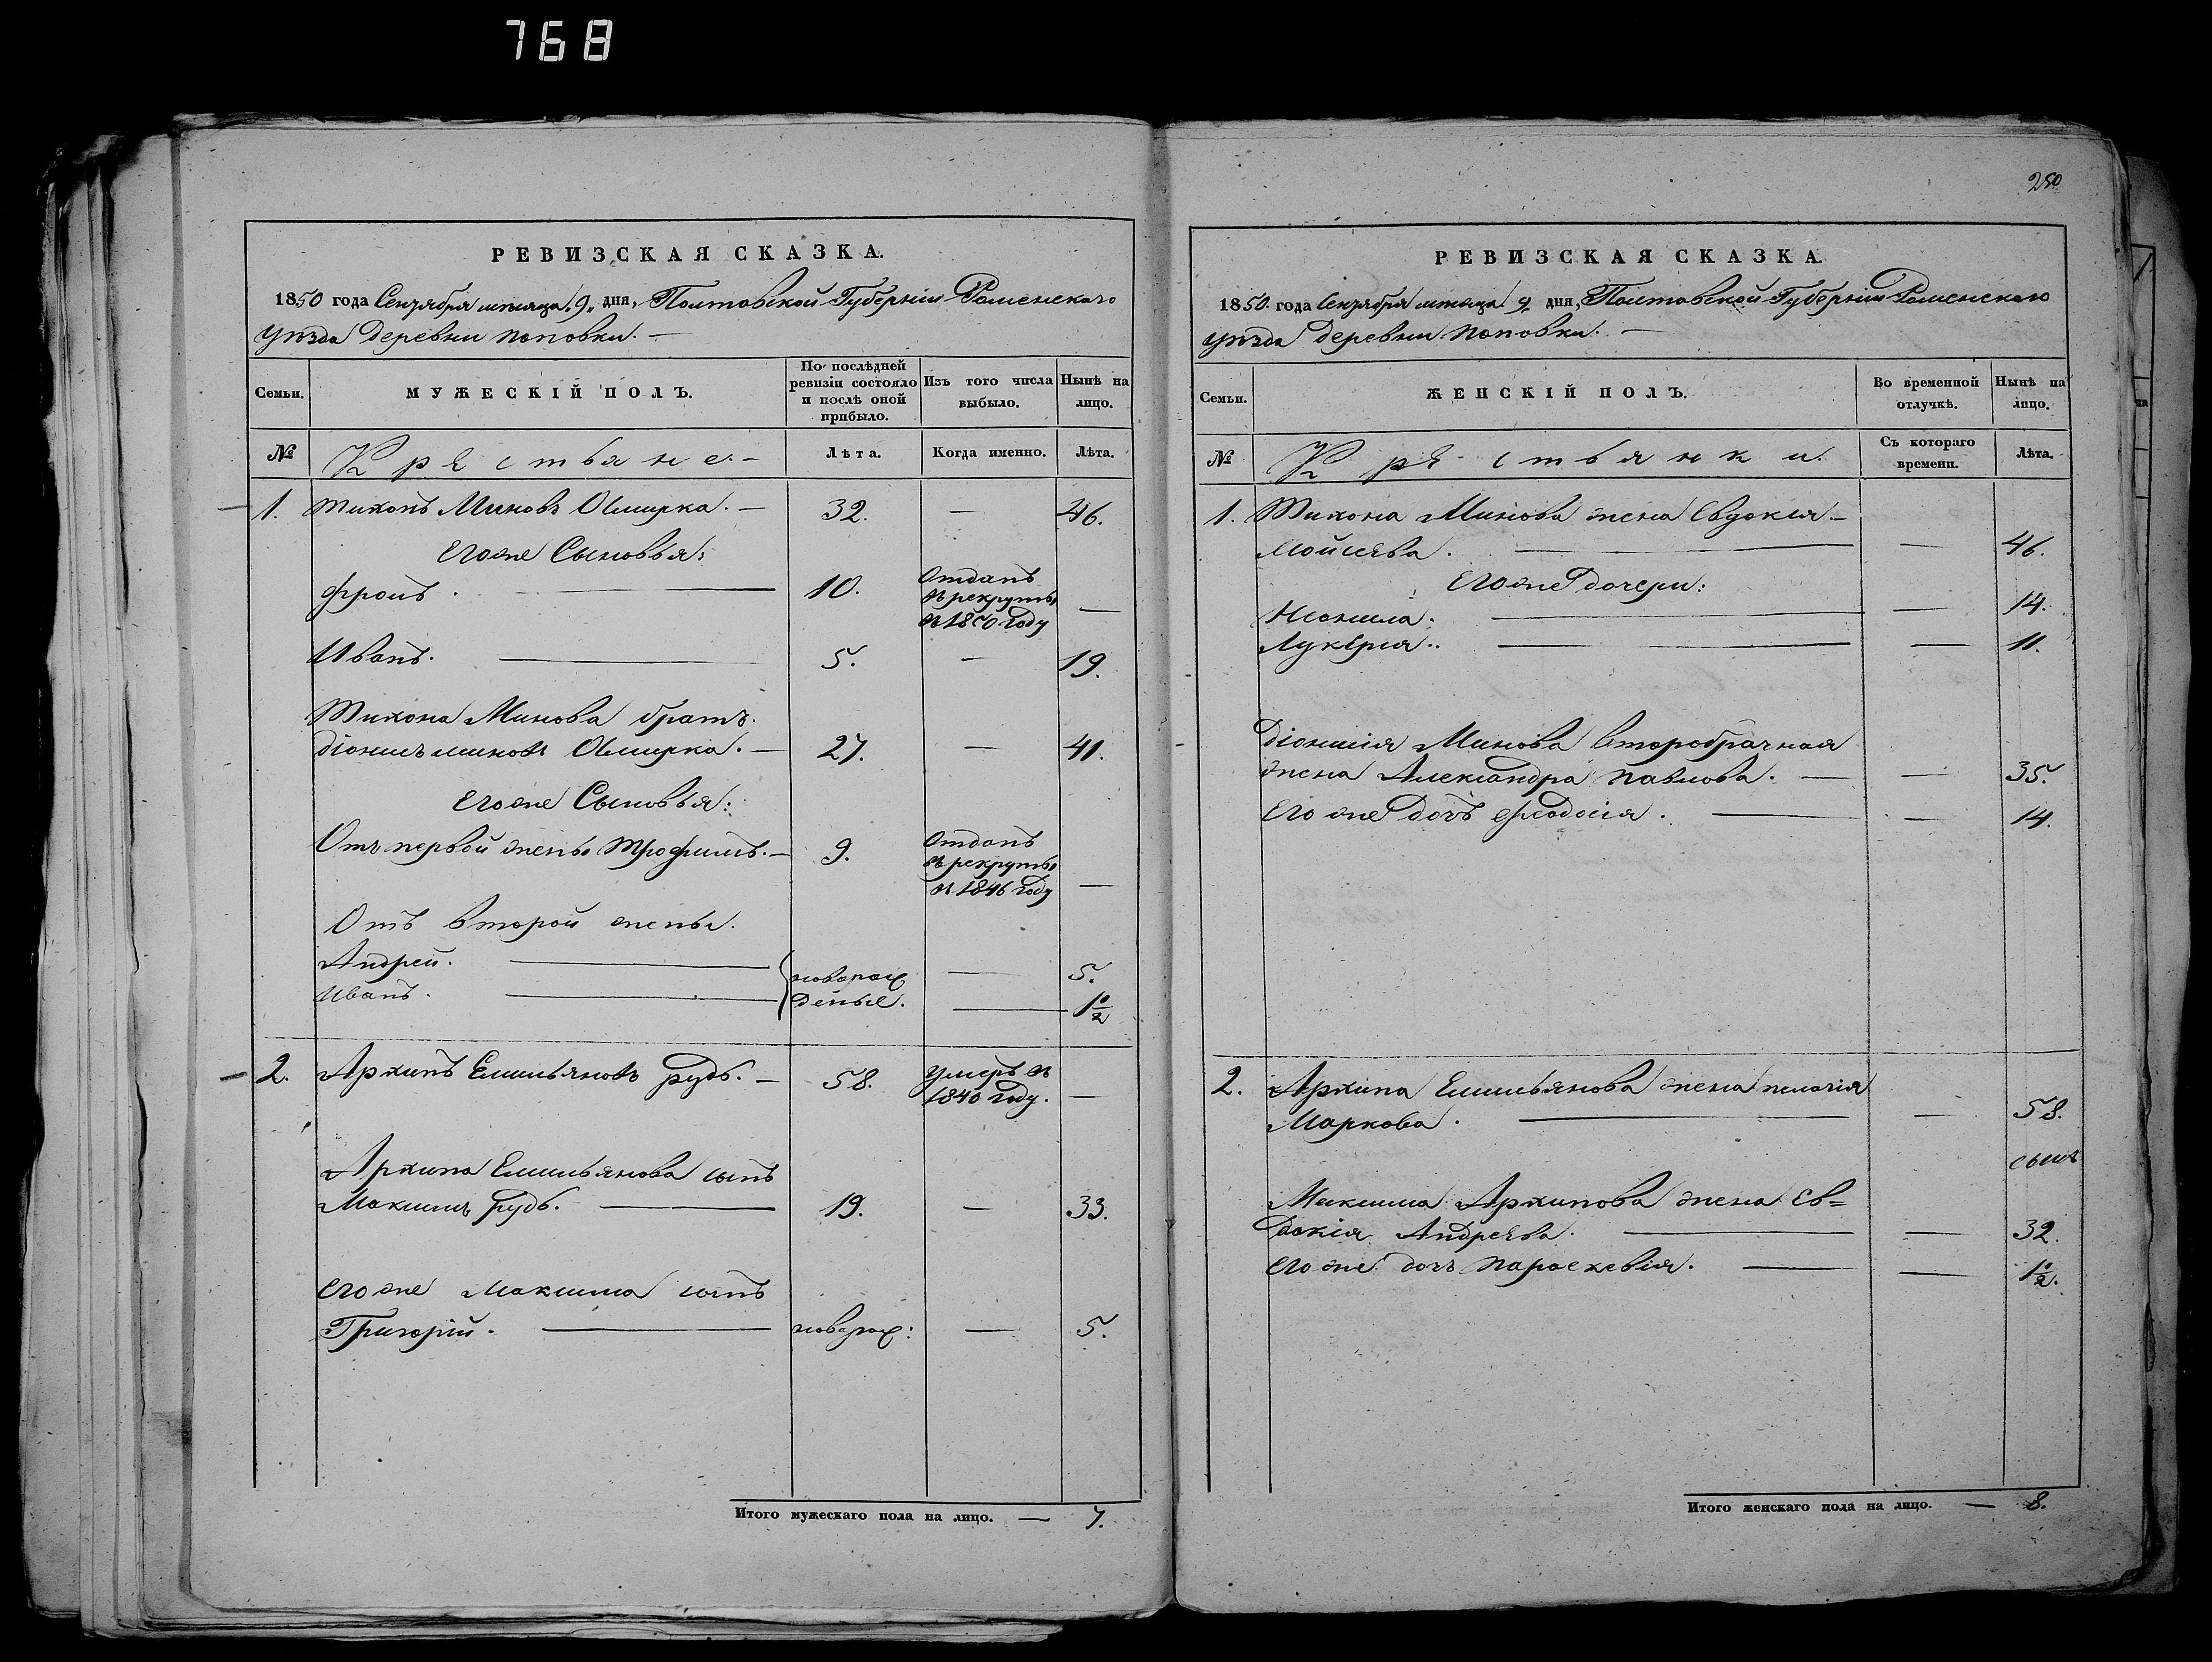 768
РЕВИЗСКАЯ СКАЗКА.
1850 года Сентября мѣсяца 9 дня, Полтавской Губерніи Роменскаго
Уѣзда Деревни Поповки. —
Семьи.
МУЖЕСКІЙ ПОЛЪ.
По послѣдней ревизіи состояло и послѣ оной прибыло.
Изъ того числа выбыло.
Нынѣ на лицо.
№
Крѣстьяне. —
Лѣта.
Когда именно.
Лѣта.
1. Тихонъ Миновъ — 32. — 46.
Его же Сыновья:
Фролъ. — 10. Отданъ
въ рекруты —
въ 1850 году
Иванъ. — 5. — 19.
Тихона Минова братъ
Діонисъ Миновъ — 27. — 41.
Его же Сыновья:
Отъ первой жены Трофимъ. — 9. Отданъ
въ рекруты
въ 1846 году —
Отъ второй жены.
Андрей. — новорож — 5.
Иванъ. — деные. — 1½
2. Архипъ Емильяновъ Рудь. — 58. Умеръ въ
1840 году. —
Архипа Емильянова сынъ
Максимъ Рудь. — 19. — 33.
Его же Максима сынъ
Григорій. — новорож: — 5.
Итого мужескаго пола на лицо. — 7.
250
РЕВИЗСКАЯ СКАЗКА.
1850 года Сентября мѣсяца 9 дня, Полтавской Губерніи Роменскаго
Уѣзда Деревни Поповки. —
Семьи.
ЖЕНСКІЙ ПОЛЪ.
Во временной отлучкѣ.
Нынѣ на лицо.
№
Крѣстьянки.
Съ котораго времени.
Лѣта.
1. Тихона Минова жена Евдокія —
Мойсѣева. — — 46.
Его же дочери:
Неонила. — — 14.
Лукерія. — — 11.
Діонисія Минова второбрачная
жена Александра Павлова. — — 35.
Его же дочь Феодосія. — — 14.
2. Архипа Емильянова жена Пелагія
Маркова. — — 58.
сынъ
Максима Архипова жена Ев=
докія Андреева. — — 32.
Его же дочь Параскевія. — — 1½.
Итого женскаго пола на лицо. — 8.